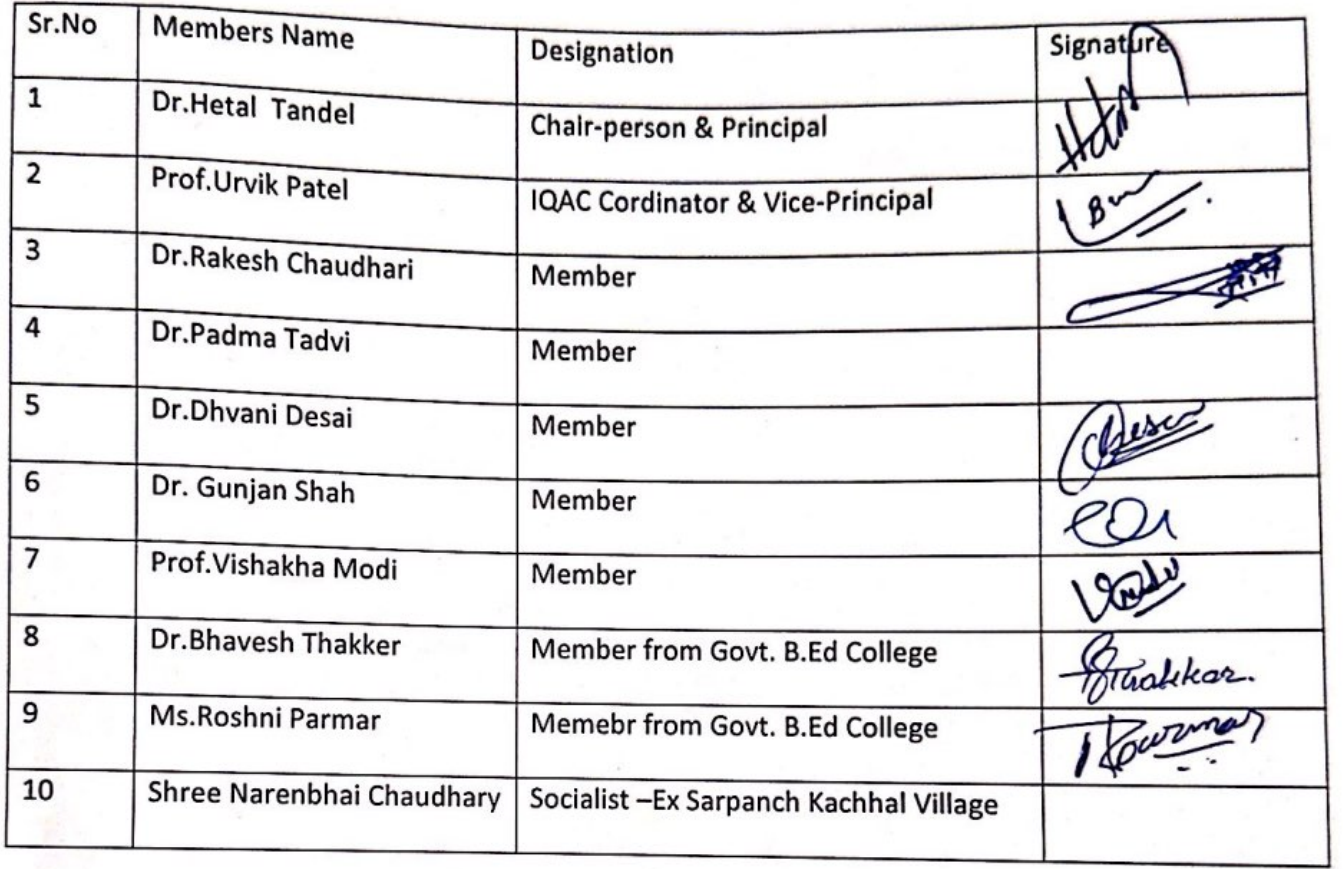 Sr.No Members Name Designation Signature
1 Dr.Hetal Tandel Chair-person & Principal
2 Prof.Urvik Patel IQAC Cordinator & Vice-Principal
3 Dr.Rakesh Chaudhari Member
4 Dr.Padma Tadvi Member
5 Dr.Dhvani Desai Member
6 Dr. Gunjan Shah Member
7 Prof.Vishakha Modi Member
8 Dr.Bhavesh Thakker Member from Govt. B.Ed College BThakkar.
9 Ms.Roshni Parmar Memebr from Govt. B.Ed College
10 Shree Narenbhai Chaudhary Socialist –Ex Sarpanch Kachhal Village